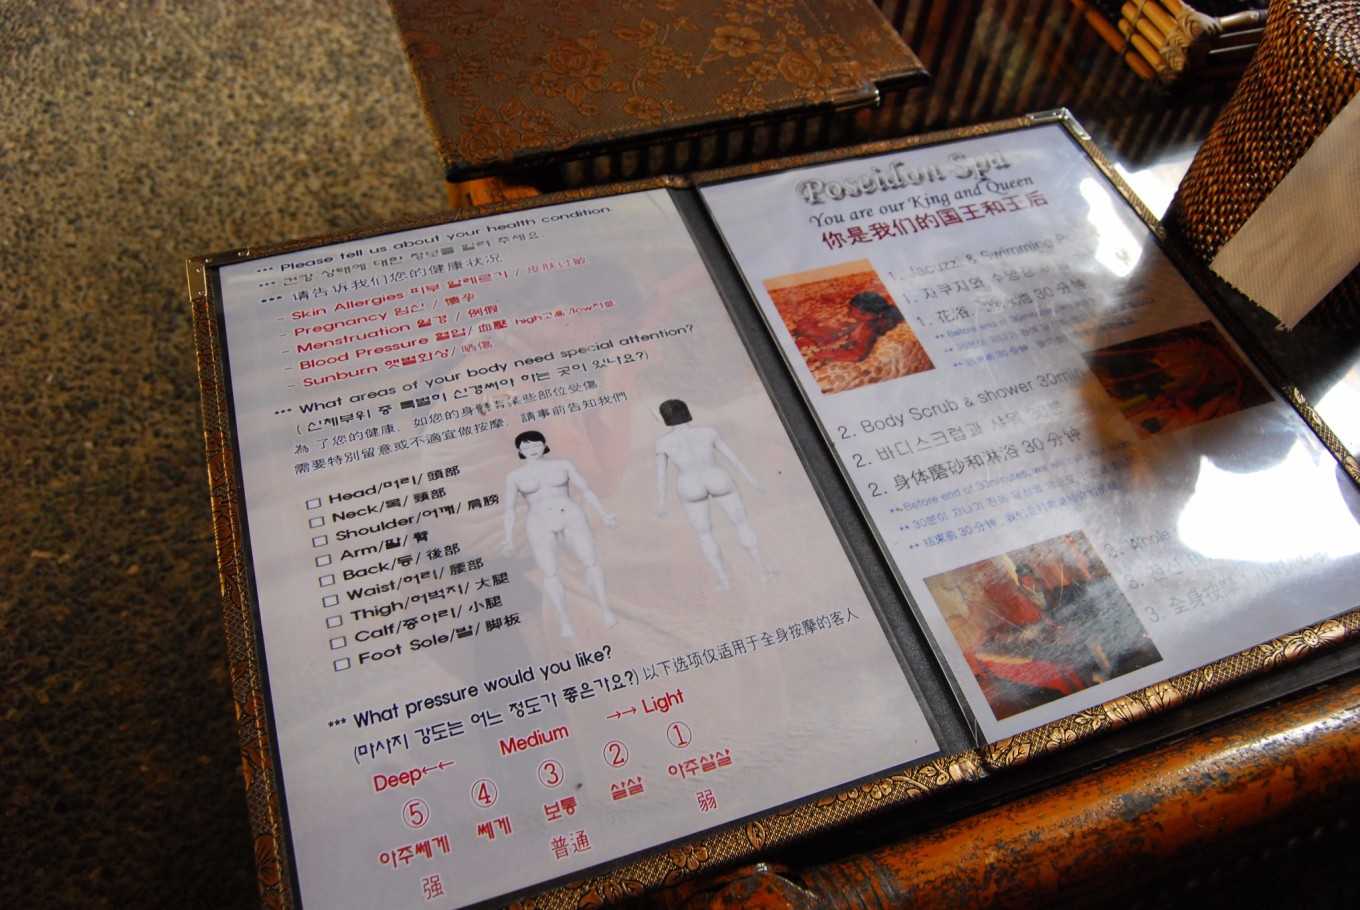 *** Please tell us about your health condition.
*** 건강 상태에 대한 정보를 알려 주세요.
*** 请告诉我们您的健康状况
- Skin Allergies 피부 알레르기 / 皮肤过敏
- Pregnancy 임신 / 懷孕
- Menstruation 월경 / 例假
- Blood Pressure 혈압/ 血壓 high고혈 /low저혈
- Sunburn 햇빛화상/ 晒傷
*** What areas of your body need special attention?
( 신체부위 중 특별히 신경써야 하는 곳이 있나요?)
為了您的健康, 如您的身體有某些部位受傷
需要特別留意或不適宜做按摩, 請事前告知我們
Head/머리/ 頭部
Neck/목/ 頸部
Shoulder/어깨/ 肩膀
Arm/팔/ 臂
Back/등/ 後部
Waist/허리/ 腰部
Thigh/허벅지/ 大腿
Calf/종아리/ 小腿
Foot Sole/발/ 脚板
*** What pressure would you like?
(마사지 강도는 어느 정도가 좋은가요?) 以下选项仅适用于全身按摩的客人
Deep←← Medium →→ Light
⑤ ④ ③ ② ①
아주쎄게 쎄게 보통 살살 아주살살
强 普通 弱
Poseidon Spa
You are our King and Queen
你是我们的国王和王后
1. Jacuzzi & Swimming
1. 자쿠지와 수영장
1. 花浴, 30 分钟
** Before end of
2. Body Scrub & shower 30min
2. 바디스크럽과 샤워
2. 身体磨砂和淋浴 30 分钟
** Before end of 30minutes, we will
** 30분이 지나기 전에
** 结束前 30 分钟,
3. Whole
3.
3. 全身按摩